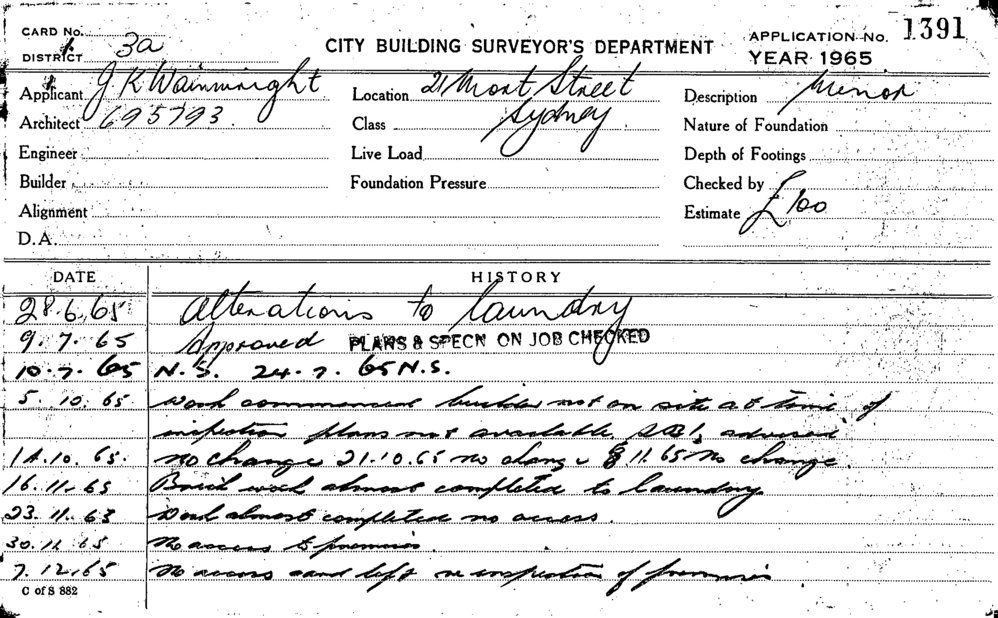 CARD No.
DISTRICT 3a
CITY BUILDING SURVEYOR'S DEPARTMENT
APPLICATION No. 1391
YEAR 1965
Applicant J K Wainwright
Location 21 Mort Street
Description Minor
Architect 695793
Class Sydney
Nature of Foundation
Engineer
Live Load
Depth of Footings
Builder
Foundation Pressure
Checked by
Alignment
Estimate £100
D.A.
DATE HISTORY
28.6.65 Alterations to laundry
9.7.65 Approved PLANS & SPECN ON JOB CHECKED
10.7.65 N.S. 24.7.65 N.S.
5.10.65 Work commenced builder not on site at time of
inspection plans not available. advised
14.10.65. no change 21.10.65 no change 8.11.65 No change.
16.11.65 Brick work almost completed to laundry
23.11.63 Work almost completed no access.
30.11.65 No access to premises.
7.12.65 No access card left re inspection of premises
C of S 882